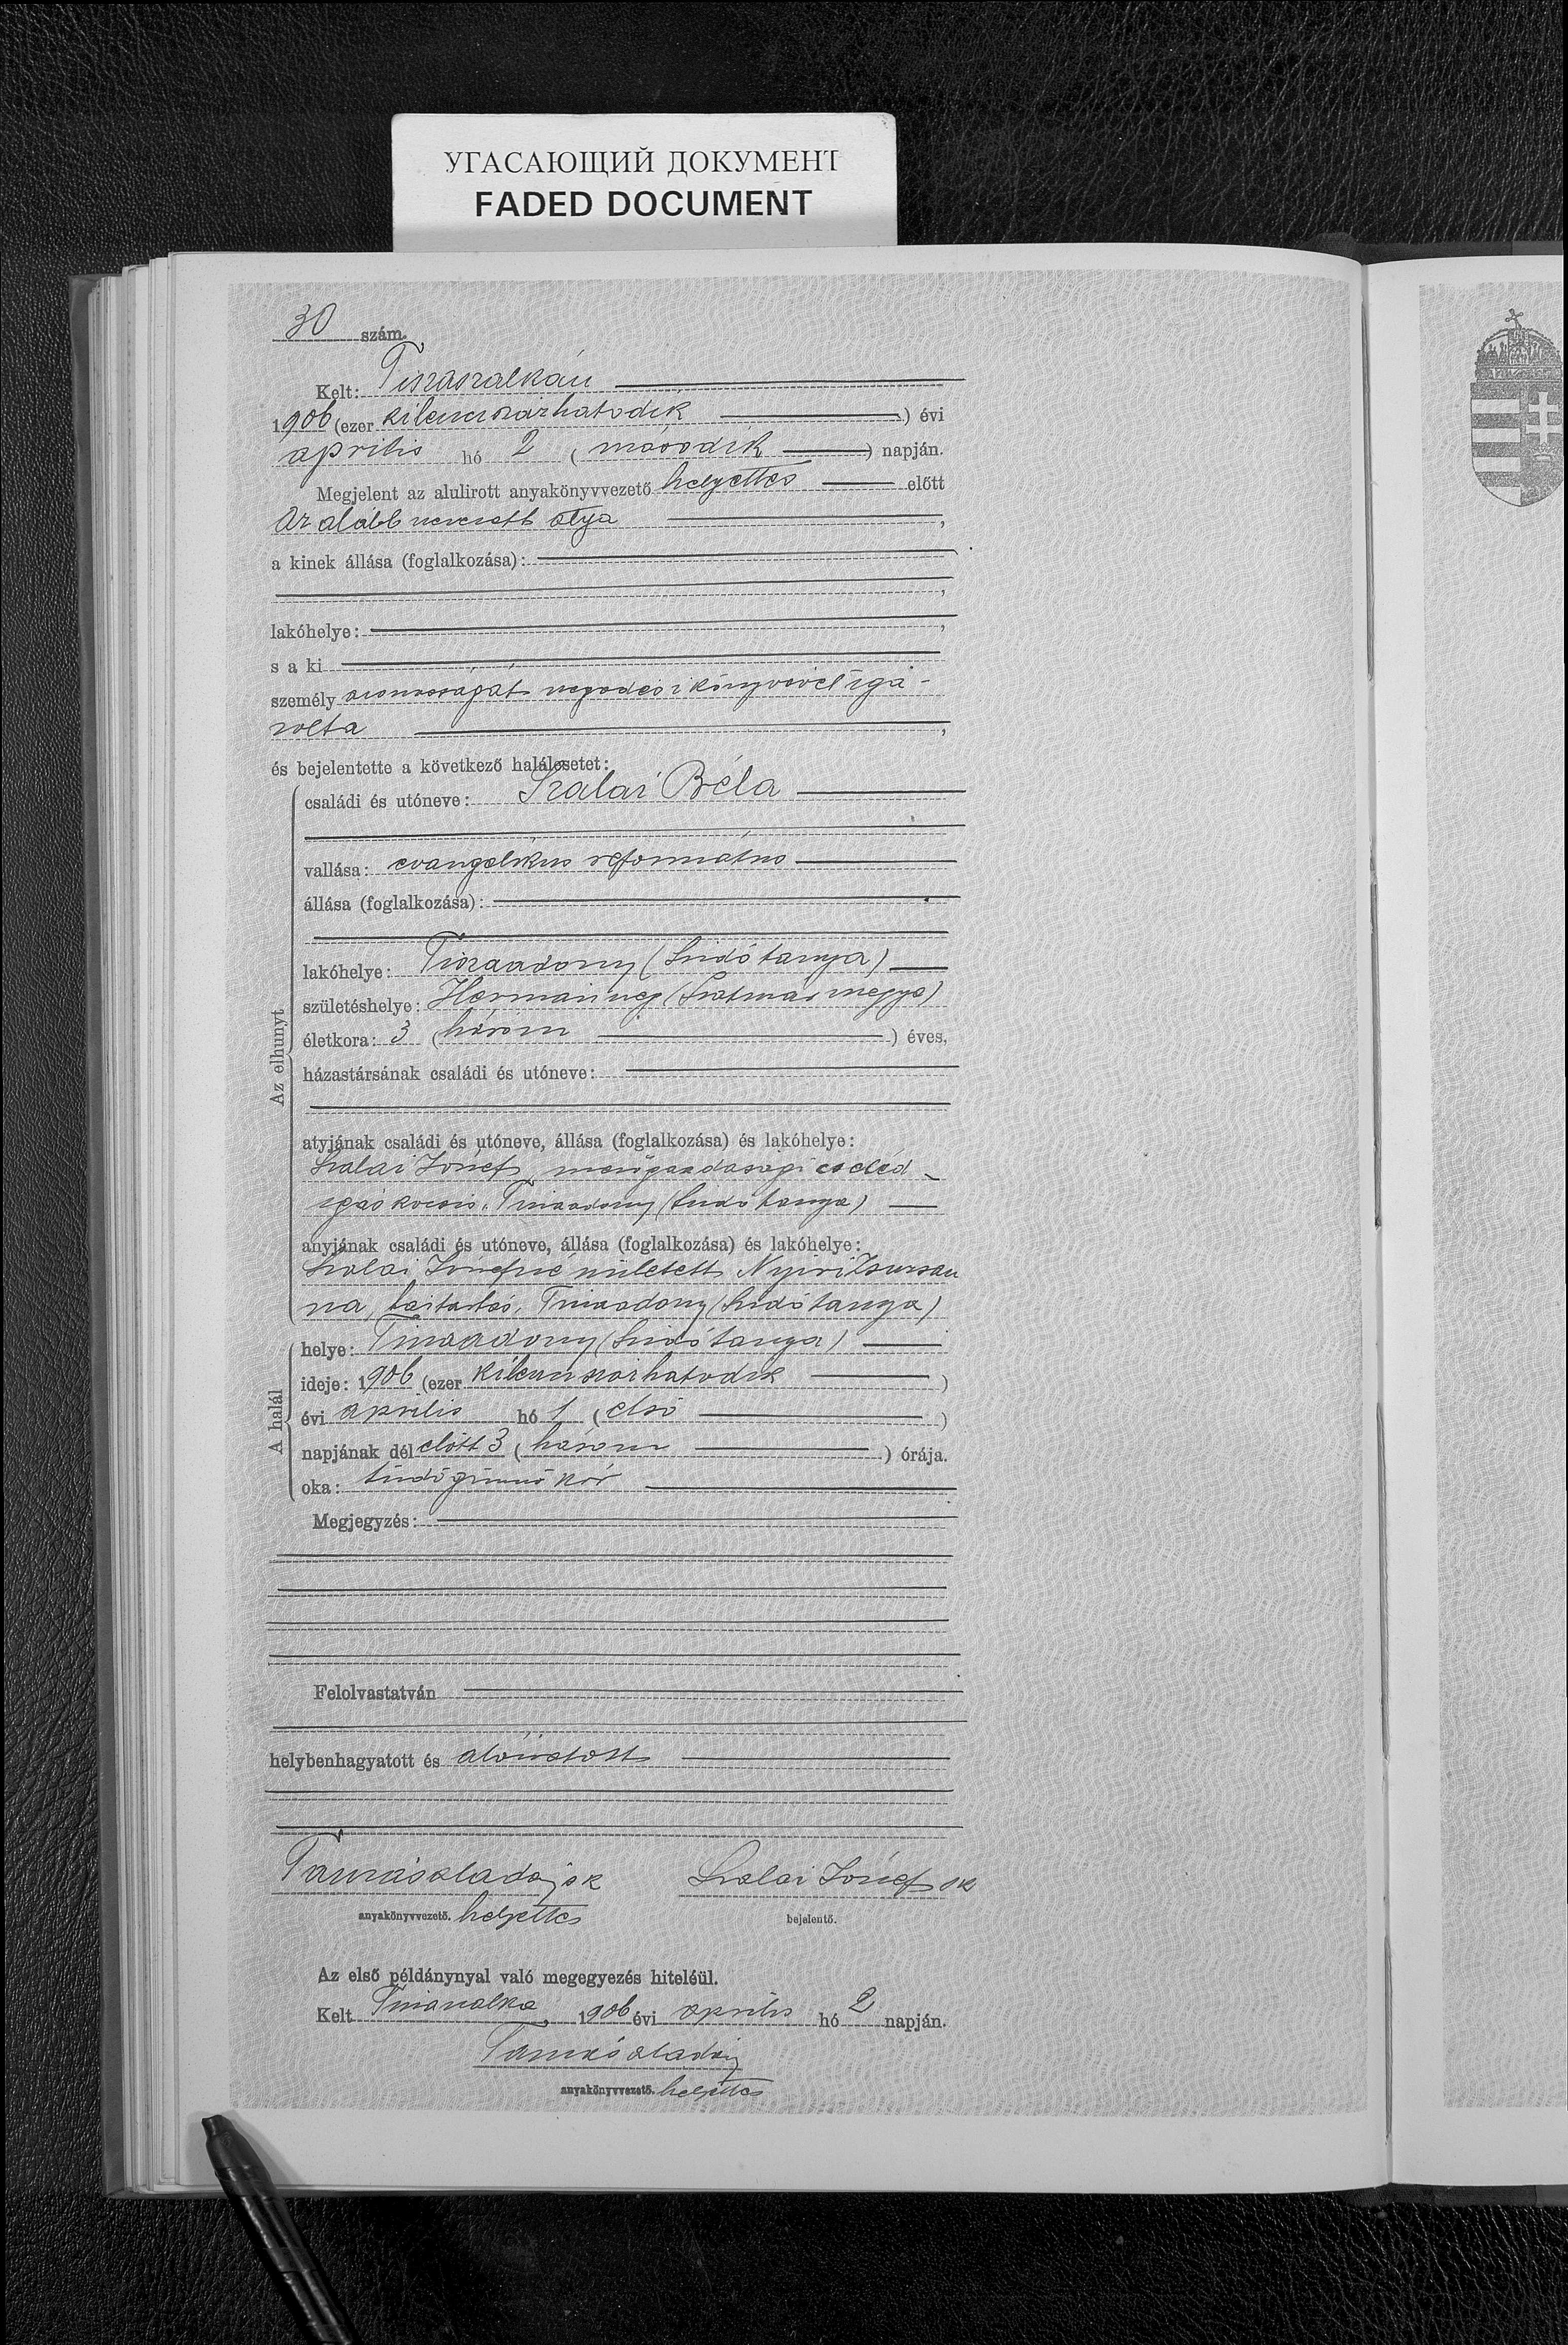 УГАСАЮЩИЙ ДОКУМЕНТ
FADED DOCUMENT
30 szám.
Kelt: Tiszaszalkán
1906 (ezer kilencszázhatodik ) évi
április hó 2 ( második ) napján.
Megjelent az alulirott anyakönyvvezető helyettes előtt
Az alább nevezett atya ,
a kinek állása (foglalkozása):
,
lakóhelye: ,
s a ki
személy azonosságát negodési könyvével iga-
zolta ,
és bejelentette a következő halálesetet:
Az elhunyt
családi és utóneve: Szalai Béla
vallása: evangelikus református
állása (foglalkozása):
lakóhelye: Tiszaadony (Szidó tanya)
születéshelye: Hermánszeg (Szatmár megye)
életkora: 3 ( három ) éves,
házastársának családi és utóneve:
atyjának családi és utóneve, állása (foglalkozása) és lakóhelye:
Szalai József, mezőgazdasági cseléd
igás kocsis, Tiszaadony (Szidó tanya)
anyjának családi és utóneve, állása (foglalkozása) és lakóhelye:
Szalai Józsefné született Nyiri Zsuzsan
na, Tiszaadony (Szidó tanya)
A halál
helye: Tiszaadony (Szidó tanya)
ideje: 1906 (ezer kilencszázhatodik )
évi április hó 1 ( első )
napjának dél előtt 3 ( három ) órája.
oka: tüdőgümőkór
Megjegyzés:
Felolvastatván
helybenhagyatott és aláíratott
Tamás Aladár sk Szalai József sk
anyakönyvvezető. helyettes bejelentő.
Az első példánynyal való megegyezés hiteléül.
Kelt Tiszaszalka, 1906 évi április hó 2 napján.
Tamás Aladár
anyakönyvvezető. helyettes